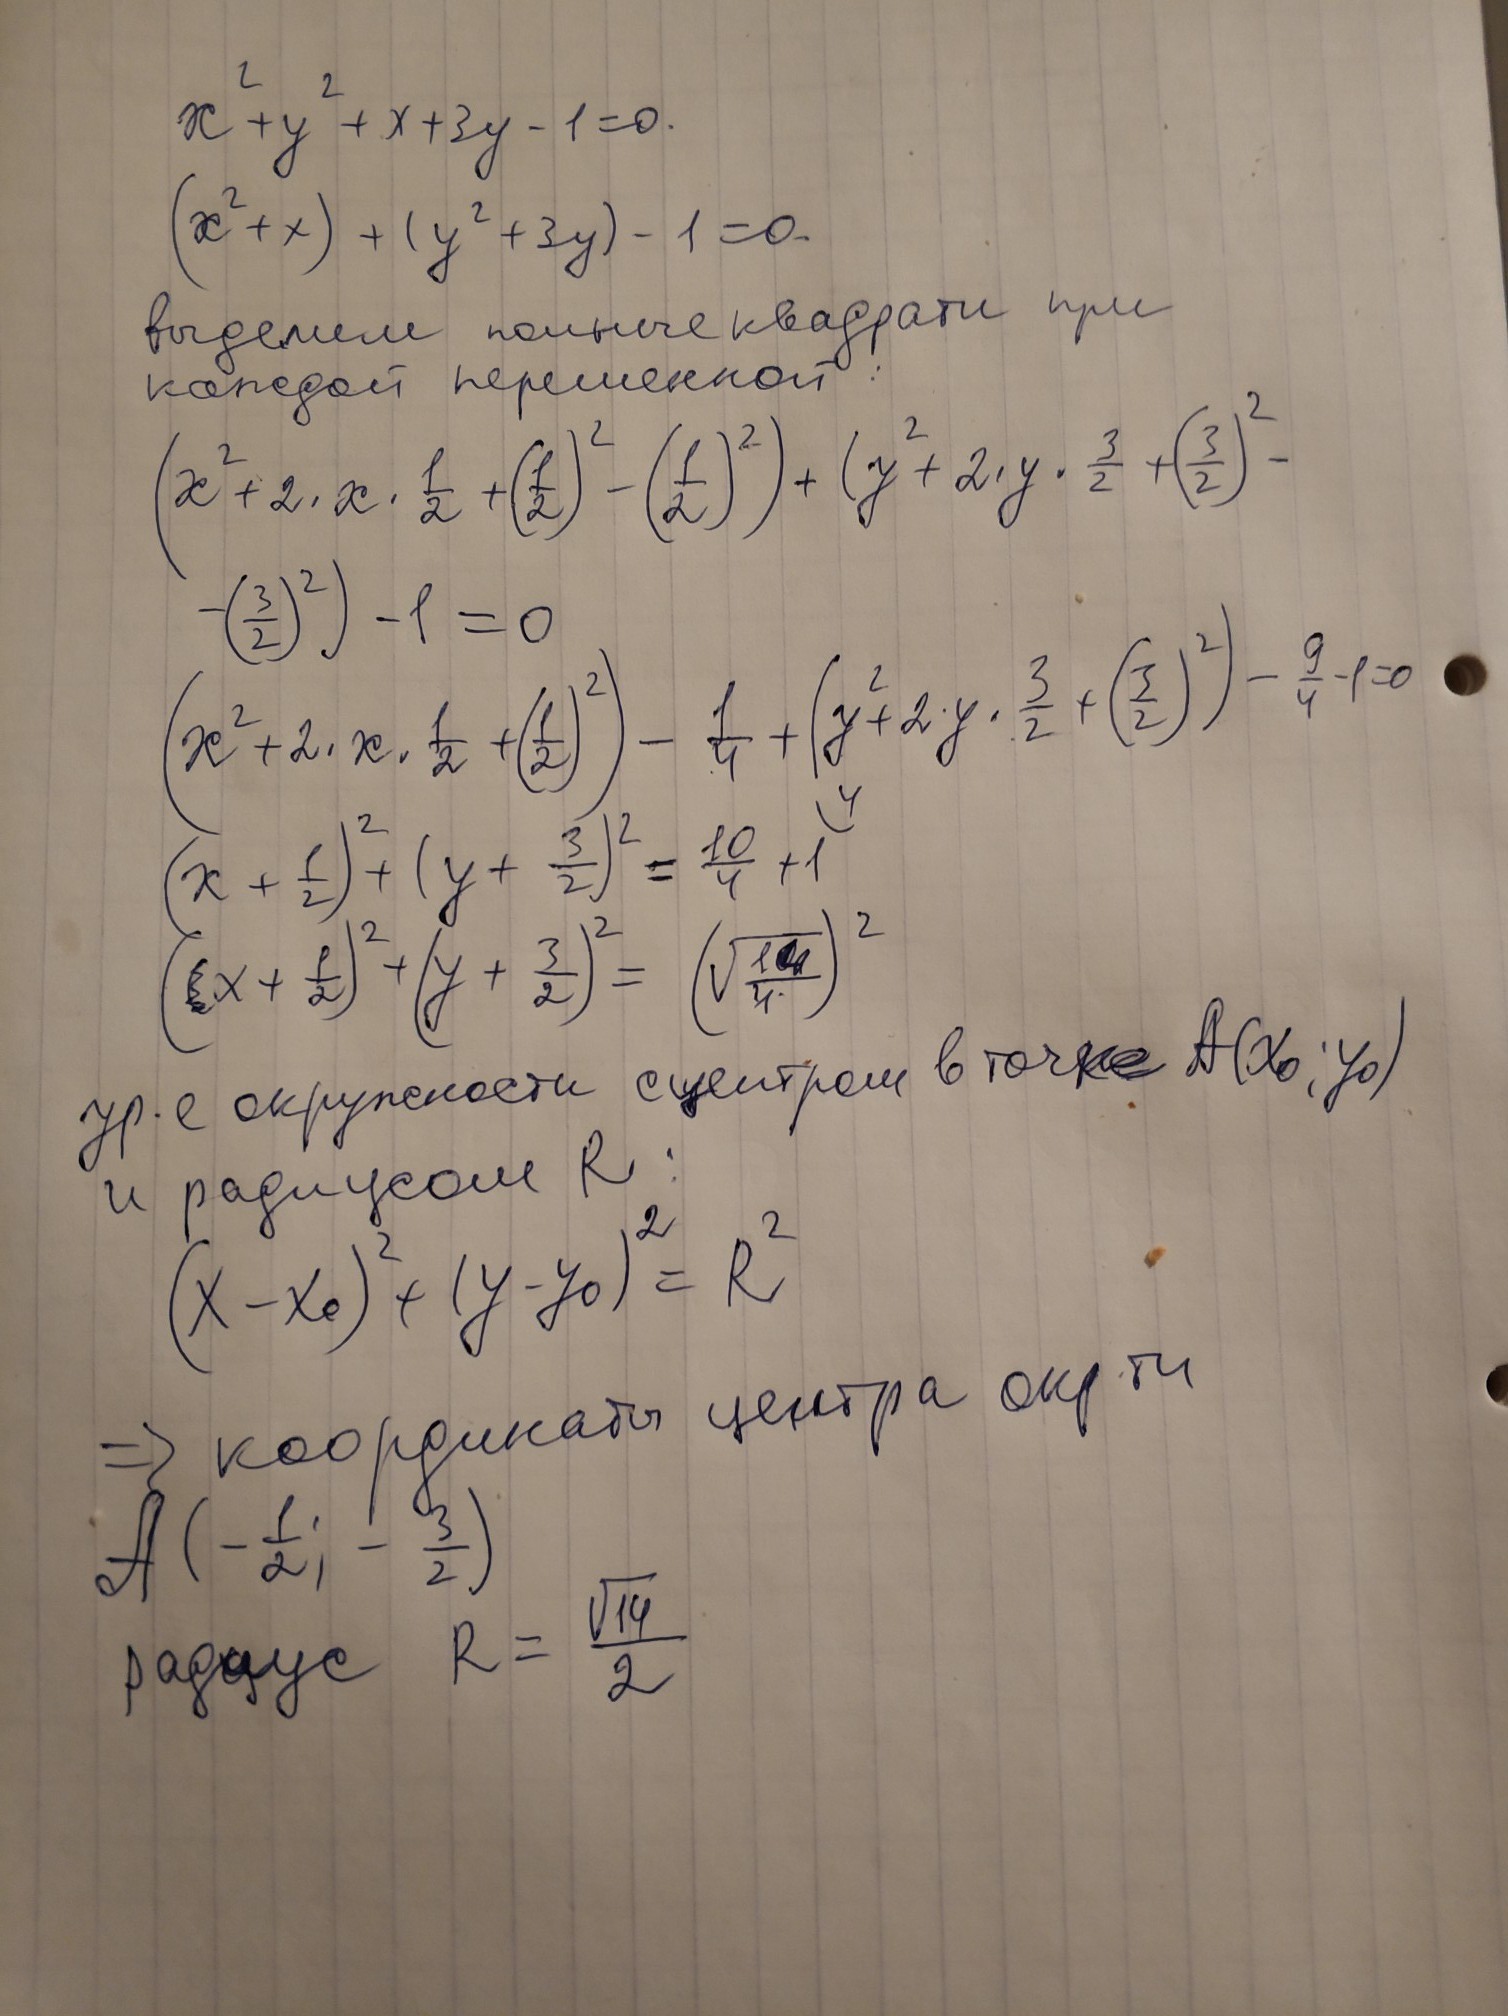 x² + y² + x + 3y - 1 = 0.
(x² + x) + (y² + 3y) - 1 = 0.
выделим полные квадраты при
каждой переменной:
(x² + 2·x·1/2 + (1/2)² - (1/2)²) + (y² + 2·y·3/2 + (3/2)² -
-(3/2)²) - 1 = 0
(x² + 2·x·1/2 + (1/2)²) - 1/4 + (y² + 2·y·3/2 + (3/2)²) - 9/4 - 1 = 0
(x + 1/2)² + (y + 3/2)² = 10/4 + 1 \4
(x + 1/2)² + (y + 3/2)² = (√14/4)²
ур-е окружности с центром в точке A(x₀; y₀)
и радиусом R:
(x - x₀)² + (y - y₀)² = R²
=> координаты центра окр-ти
A(-1/2; -3/2)
радиус R = √14/2